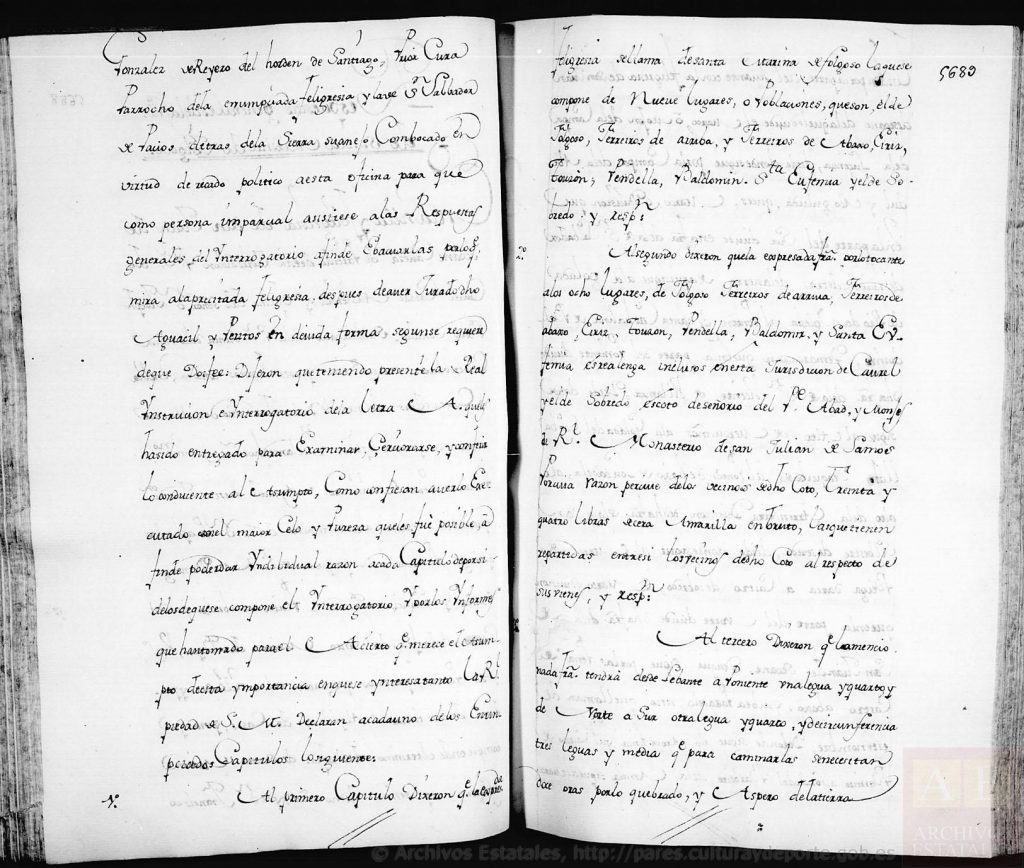 Gonzalez de Reyero del horden de Santiago, Prior Cura
Parrocho dela enunpciada feligresia y la de Sn. Salbador
de Paiios detras dela Sierra su anejo Combocado en
virtud de recado politico a esta oficina para que
como persona imparcial asistiese alas Respuestas
generales del Ynterrogatorio afin de Ebacuarlas
mira, ala precitada feligresia, despues de aver Jurado dho
Aguacil y Peritos en devida forma segun se requiere
de que Doi fee: Dijeron que teniendo presente la Real
Ynstrucion e Ynterrogatorio de la Letra A. que les
ha sido entregado para Examinar, Cerciorarse, y conferir
lo conducente al Asumpto, Como confiesan averlo Exe
cutado con el maior Celo y Pureza que les fue posible, a
fin de poder dar Yndibidual razon a cada Capitulo de por si
delos de que se compone el Ynterrogatorio, Y por los Ynformes
que han tomado para el Acierto qe. merece el Asum-
pto de esta ymportancia en que se ynteresa tanto La Rl.
piedad de S. M. Declaran a cada uno de los Enun-
Capitulos lo siguiente:
1o.
Al primero Capitulo Dixeron qe. la Expresda.
5689
feligresia se llama de santa Catarina de folgoso la que se
compone de Nueve lugares, o Poblaciones, que son, el de
Folgoso, Ferreiros de arriba, y Ferreiros de Abaxo, Eiriz,
Touzon, Vendella, Valdomir. Sta. Eufemia y el de So-
bredo y respn:
2o.
Al segundo dixeron que la expresada fra. por lo tocante
alos ocho lugares, de Folgoso Ferreiros de arriva, Ferreiros de
abaxo, Eiriz, Touzon, Vendella, Valdomir, y Santa Eu-
femia es realenga inclusos en esta Jurisdicion de Caurel
y el de Sobredo es coto de señorio del Pe. Abad, y Monjes
de Rl. Monasterio de san Julian de Samos
Por cuia razon percive delos vecinos de dho Coto, Treinta y
quatro libras de cera Amarilla en bruto, las que tienen
repartidas entre si los vecinos de dho Coto al respecto de
sus vienes, y respn:
Al tercero Dixeron qe. la mencio
nada fra. tendrá desde Lebante a Poniente una legua y quarto y
de Norte a Sur otra legua y quarto, y de circunferencia
tres leguas y media qe. para caminarlas se necesitan
doce oras por lo quebrado, y Aspero dela tierra
© Archivos Estatales, http://pares.culturaydeporte.gob.es
ARCHIVO
ESTATALES